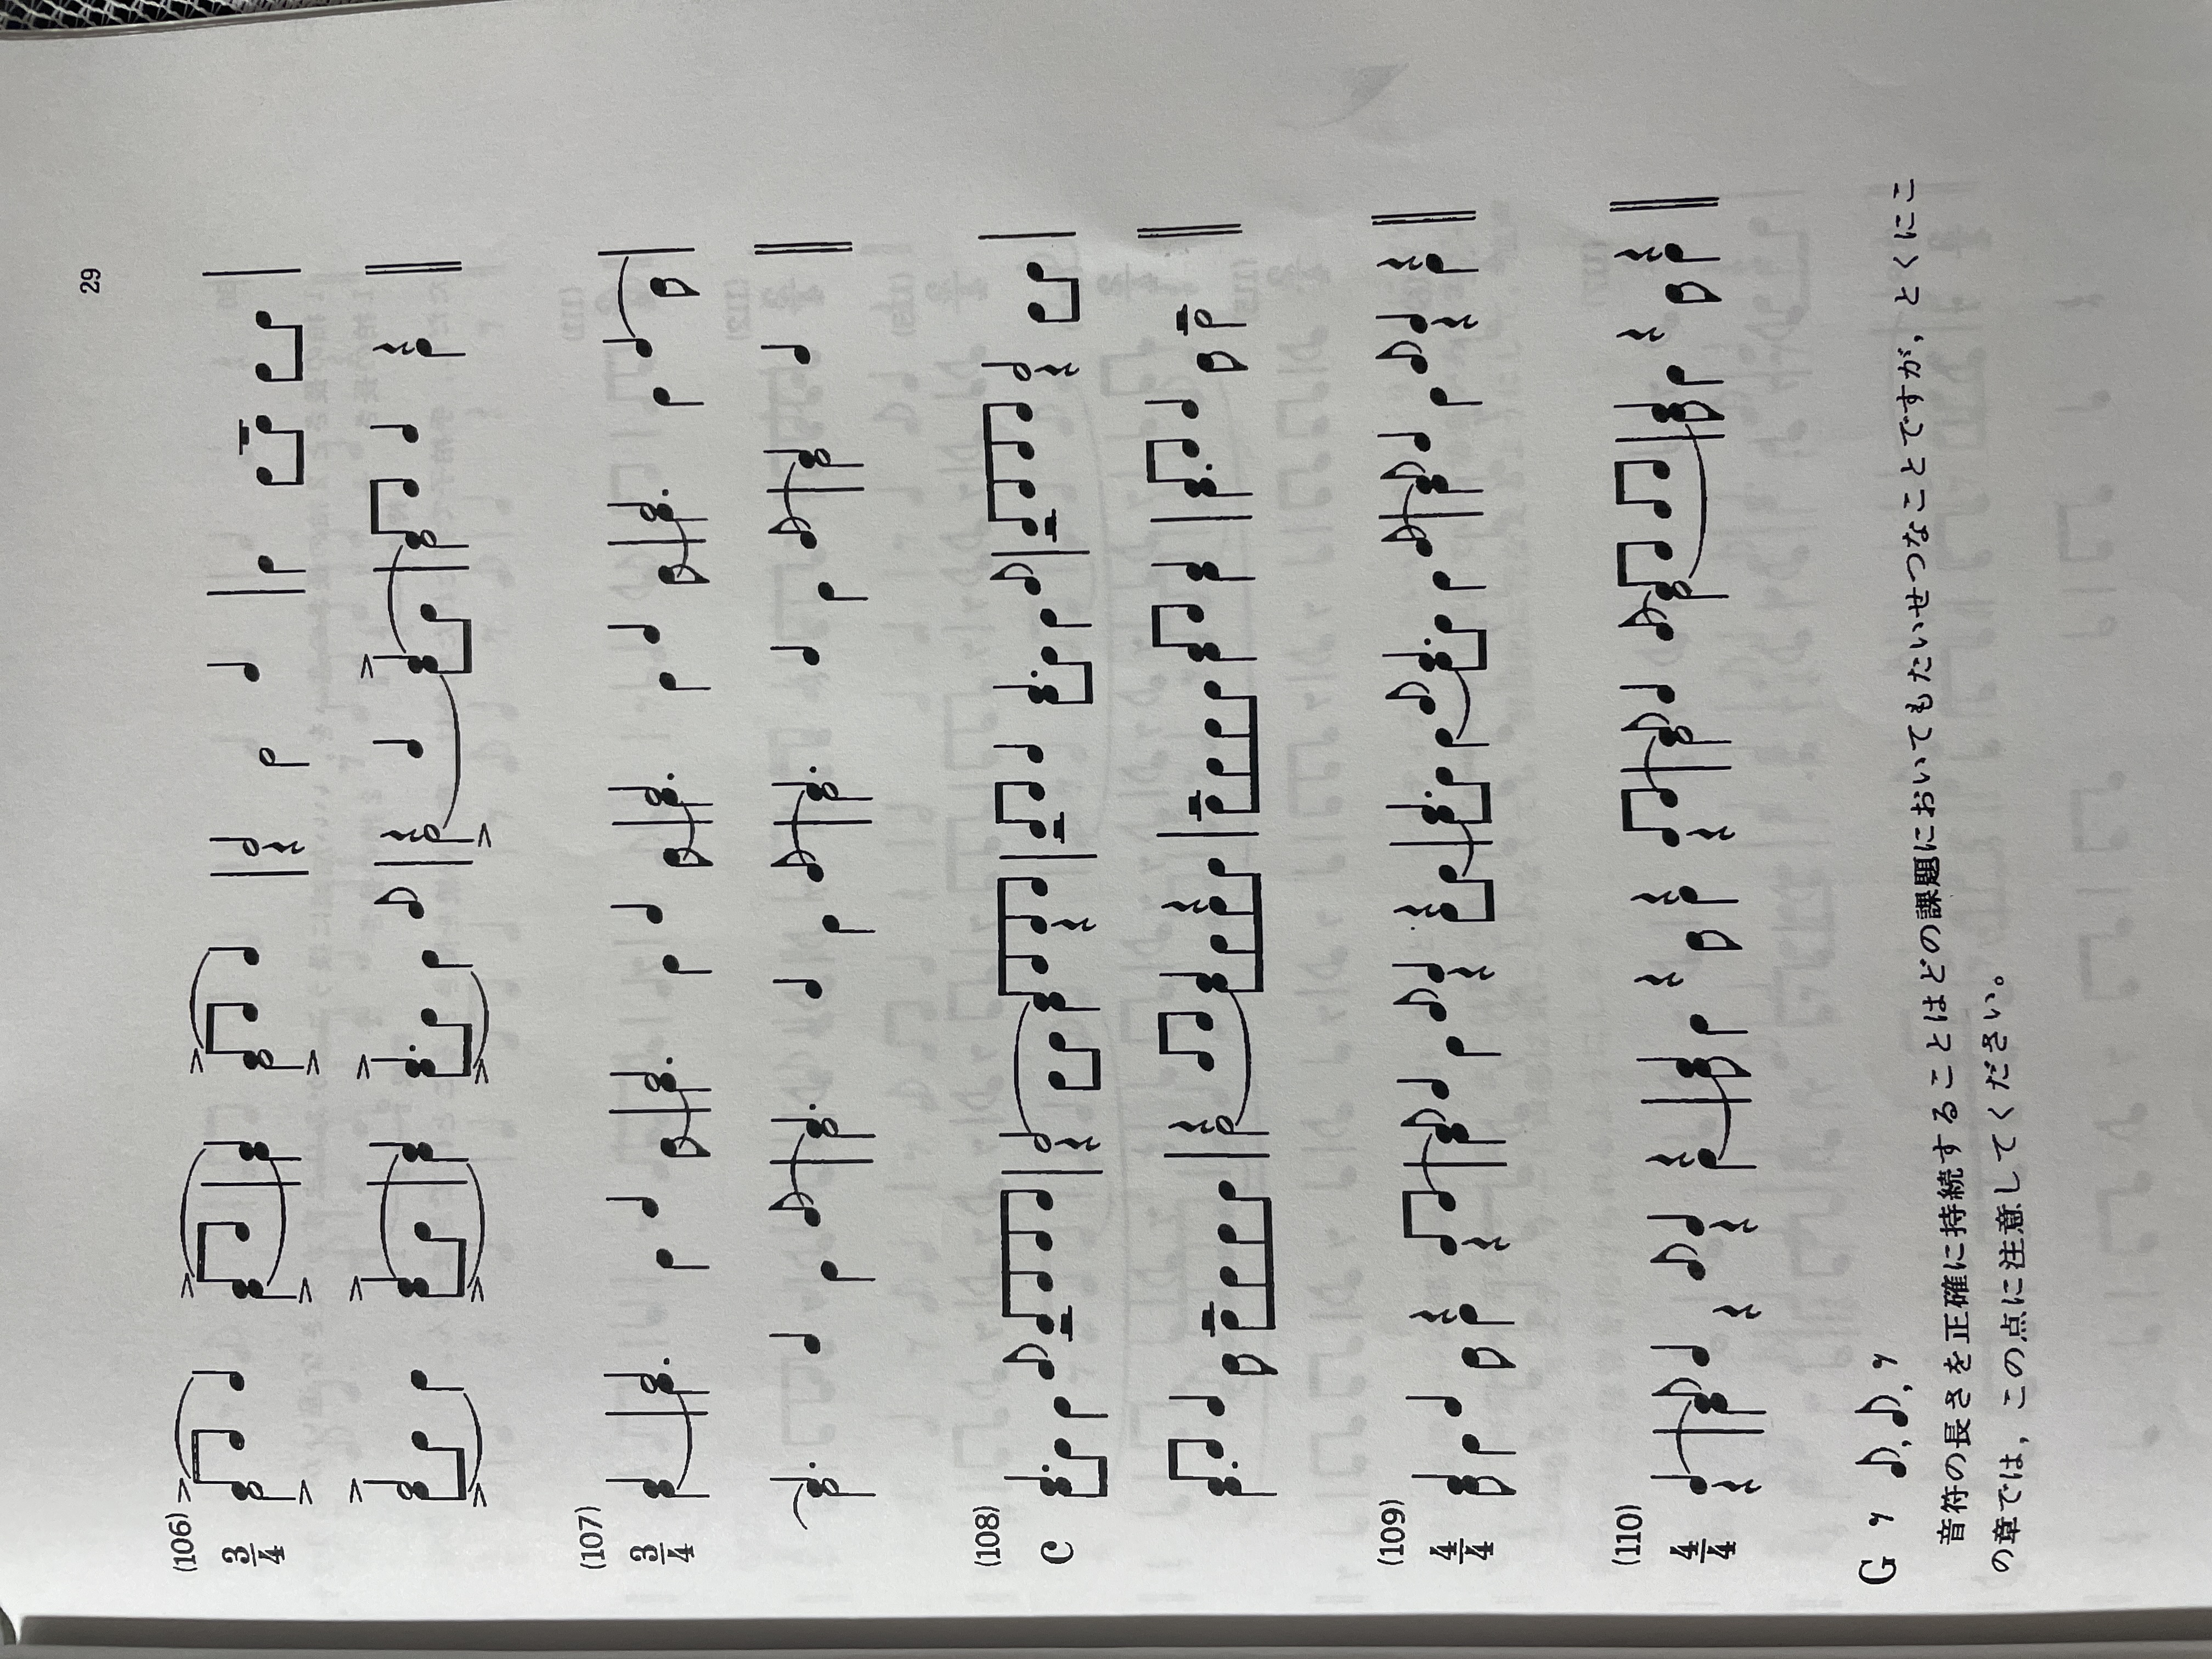 29
(106)
3
4
(107)
3
4
(108)
C
(109)
4
4
(110)
4
4
G
音符の長さを正確に持続することはどの課題においてもたいせつなことですが，とくにこ
の章では，この点に注意してください。